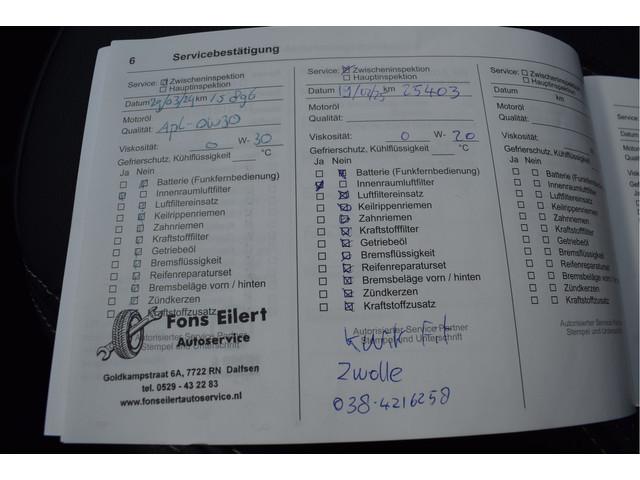 6 Servicebestätigung
Service: Zwischeninspektion
Hauptinspektion
Datum 29/03/24 km 15896
Motoröl
Qualität: Apl-0W30
Viskosität: 0 W- 30
Gefrierschutz, Kühlflüssigkeit °C
Ja Nein
Batterie (Funkfernbedienung)
Innenraumluftfilter
Luftfiltereinsatz
Keilrippenriemen
Zahnriemen
Kraftstofffilter
Getriebeöl
Bremsflüssigkeit
Reifenreparaturset
Bremsbeläge vorn / hinten
Zündkerzen
Kraftstoffzusatz
Fons Eilert
Autoservice
Autorisierter Service Partner
Stempel und Unterschrift
Goldkampstraat 6A, 7722 RN Dalfsen
tel. 0529 - 43 22 83
www.fonseilertautoservice.nl
Service: Zwischeninspektion
Hauptinspektion
Datum km 25403
Motoröl
Qualität:
Viskosität: 0 W- 20
Gefrierschutz, Kühlflüssigkeit °C
Ja Nein
Batterie (Funkfernbedienung)
Innenraumluftfilter
Luftfiltereinsatz
Keilrippenriemen
Zahnriemen
Kraftstofffilter
Getriebeöl
Bremsflüssigkeit
Reifenreparaturset
Bremsbeläge vorn / hinten
Zündkerzen
Kraftstoffzusatz
Autorisierter Service Partner
Stempel und Unterschrift
Kwik Fit
Zwolle
038-4216258
Service: Zwischeninspektion
Hauptinspektion
Datum km
Motoröl
Qualität:
Viskosität: W-
Gefrierschutz, Kühlflüssigkeit
Ja Nein
Batterie (Funkfernbedienung)
Innenraumluftfilter
Luftfiltereinsatz
Keilrippenriemen
Zahnriemen
Kraftstofffilter
Getriebeöl
Bremsflüssigkeit
Reifenreparaturset
Bremsbeläge vorn /
Zündkerzen
Kraftstoffzusatz
Autorisierter Service
Stempel und Unter